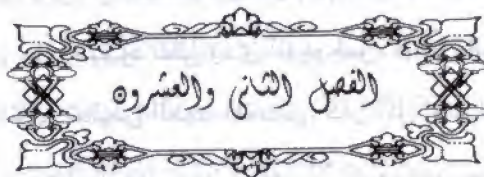 الفصل الثانى والعشرون